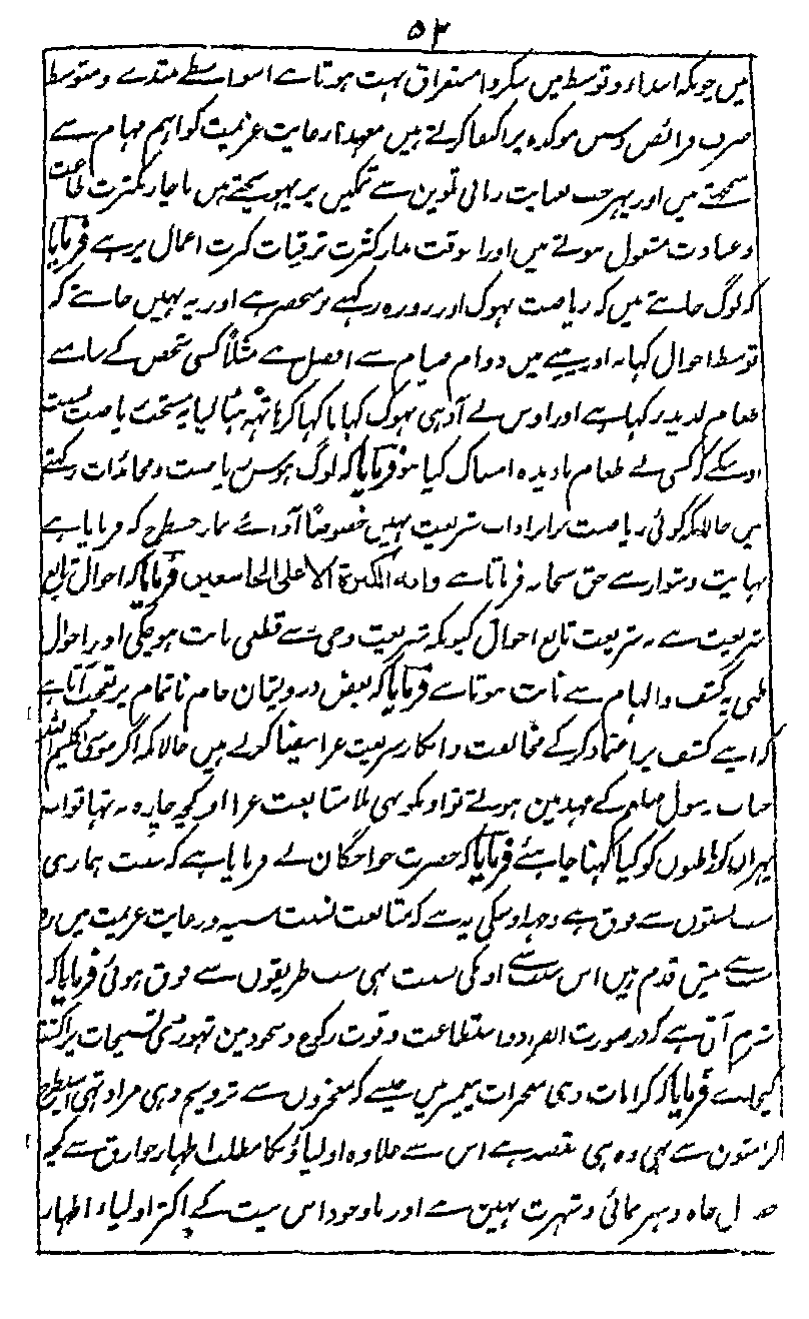 ۵۳
میں چونکہ ابتداء و توسط میں سکر و استغراق بہت ہوتا ہے اسواسطے مبتدے و متوسط
صرف فرائض و سنن موکدہ پر اکتفا کرتے ہیں معہذا رعایت عزیمت کو اہم مہام سے
سمجھتے ہیں اور پہر جب بعنایت ربانی تلوین سے تمکین پر پہونچتے ہیں ناچار بکثرت طاعت
و عبادت مشغول ہوتے ہیں اور اسوقت مدار کثرت ترقیات کثرت اعمال پر ہے فرمایا
کہ لوگ جانتے ہیں کہ ریاضت بہوک اور روزہ رکہنے پر منحصر ہے اور یہ نہیں جانتے کہ
توسط احوال کہانے اور پینے میں دوام صیام سے افضل ہے مثلاً کسی شخص کے سامنے
طعام لذیذ رکہا ہے اور اوس نے آدہی بہوک کہانا کہا کر ہاتہہ ہٹا لیا یہ سخت ریاضت نسبت
اوسکے کہ کسی نے طعام نادیدہ امساک کیا ہو فرمایا کہ لوگ ہوس ریاضت و مجاہدات رکہتے
ہیں حالانکہ کوئی ریاضت برابر آداب شریعت نہیں خصوصاً آدائے نماز جسطرح کہ فرمایا ہے
نہایت دشوار ہے حق سبحانہ فرماتا ہے وانہا لکبیرة الا علی الخاشعین فرمایا کہ احوال تابع
شریعت ہے نہ شریعت تابع احوال کیونکہ شریعت وحی سے قطعی ثابت ہو چکی اور احوال
ظنی یہ کشف و الہام سے ثابت ہوتا ہے فرمایا کہ بعض درویشان خام ناتمام پر تعجب آتا ہے
کہ اپنے کشف پر اعتماد کر کے مخالفت و انکار شریعت غرا بیضا کرتے ہیں حالانکہ اگر موسیٰ کلیم اللہ
جناب رسول صلعم کے عہد میں ہوتے تو اونکو بہی بلا متابعت غرا اور کچہہ چارہ نہ تہا تو اب
پہر ان کور باطنوں کو کیا کہنا چاہئے فرمایا کہ حضرت خواجگان نے فرمایا ہے کہ نسبت ہماری
سب نسبتوں سے فوق ہے وجہ اوسکی یہ ہے کہ متابعت سنت سنیہ و رعایت عزیمت میں وہ
سب سے پیش قدم ہیں اس سبب سے اونکی نسبت بہی سب طریقوں سے فوق ہوئی فرمایا کہ
شرم آتی ہے کہ در صورت انفراد و استطاعت و قوت رکوع و سجود میں تہوڑی تسبیحات پر اکتفا
کیجائے فرمایا کہ کرامات وہی معجزات پیغمبر ہیں جیسے کہ معجزوں سے ترویج دین مراد تہی اسیطرح
کرامتوں سے بہی وہ ہی مقصد ہے اس سے علاوہ اولیاؤں کا مطلب اظہار خوارق سے کچہہ
ل جاہ و ہنرنمائی و شہرت نہیں ہے اور باوجود اس نیت کے اکثر اولیاء اظہار